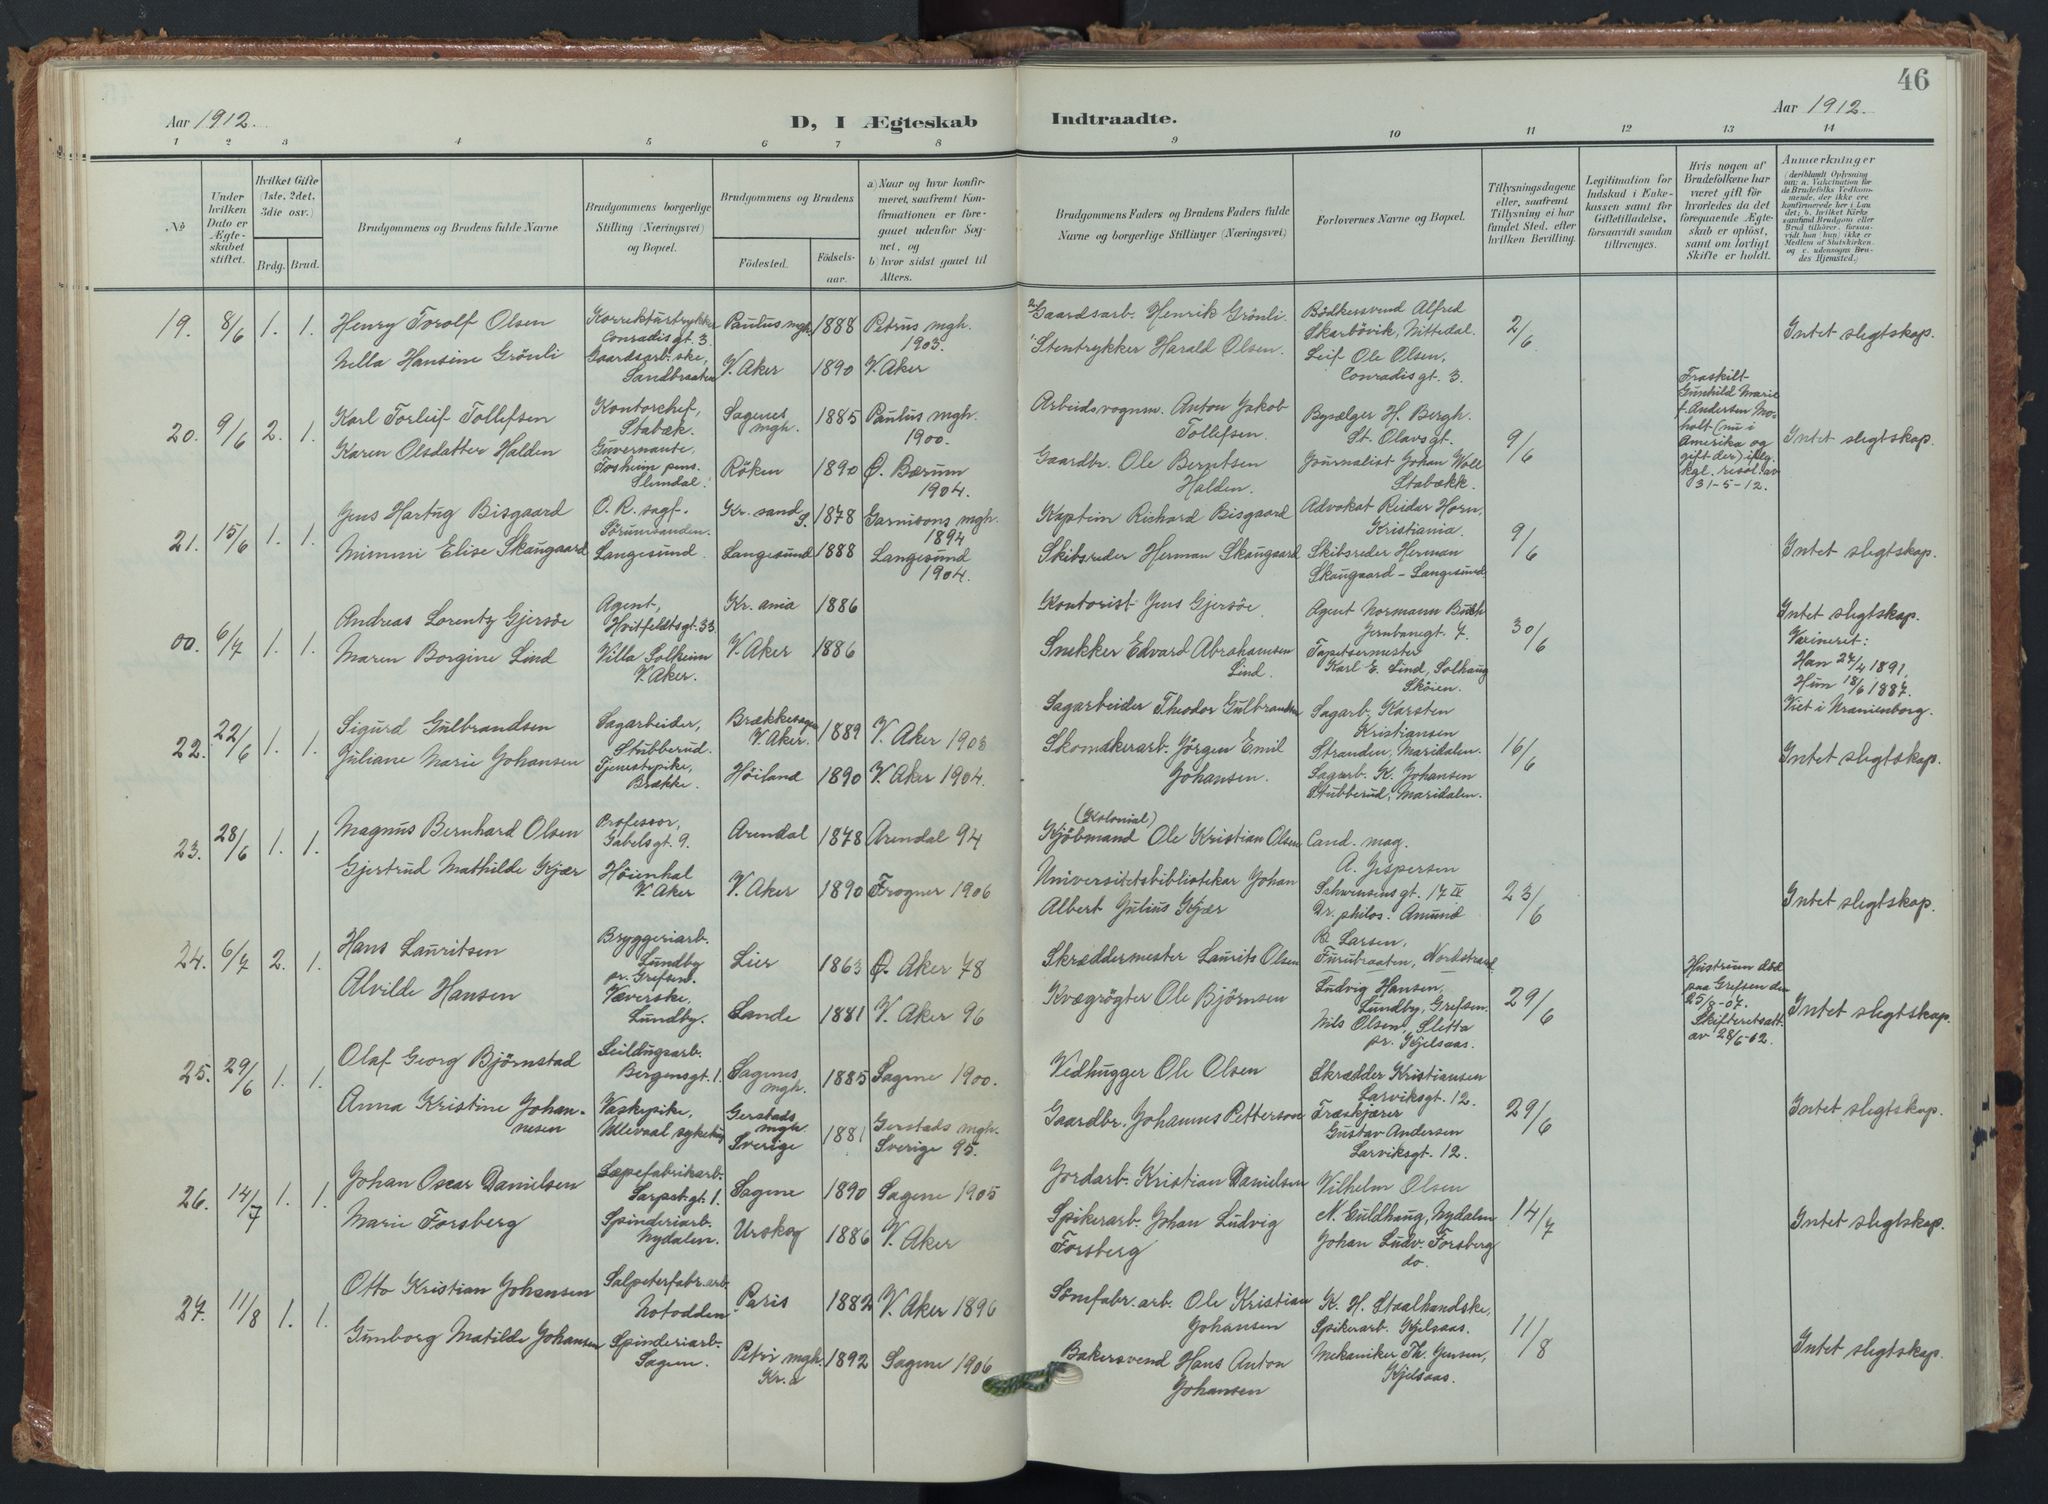 46
Aar 1912.
D, I Ægteskab Indtraadte.
Aar 1912.
1 2 3 4 5 6 7 8 9 10 11 12 13 14
No
Under hvilken Dato er Ægteskabet stiftet.
Hvilket Gifte (1ste, 2det, 3die osv.)
Brdg. Brud.
Brudgommens og Brudens fulde Navne
Brudgommens borgerlige Stilling (Næringsvei) og Bopæl.
Brudgommens og Brudens
Fødested.
Fødselsaar.
a) Naar og hvor konfirmeret, saafremt Konfirmationen er foregaaet udenfor Sognet, og
b) hvor sidst gaaet til Alters.
Brudgommens Faders og Brudens Faders fulde Navne og borgerlige Stillinger (Næringsvei)
Forlovernes Navne og Bopæl.
Tillysningsdagene eller, saafremt Tillysning ei har fundet Sted, efter hvilken Bevilling.
Legitimation for Indskud i Enkekassen samt for Giftetilladelse, forsaavidt saadan tiltrænges.
Hvis nogen af Brudefolkene har været gift før hvorledes da det foregaaende Ægteskab er opløst, samt om lovligt Skifte er holdt.
Anmærkninger
(deriblandt Oplysning om: a. Vakcination for de Brudefolks Vedkommende, der ikke ere konfirmerede her i Landet; b. hvilket Kirkesamfund Brudgom eller Brud tilhører, forsaavidt han (hun) ikke er Medlem af Statskirken, og c. udensogns Brudes Hjemsted.)
19. 8/6 1. 1.
Henry Torolf Olsen
Nella Hansine Grönli
Korrekturtrykker
Conradisgt. 3
Gaardsarb.ske,
Sandbraaten
Paulus mgh. 1888 Petrus mgh. 1903.
V. Aker 1890 V. Aker
2 Gaardsarb. Henrik Grönli.
1 Stentrykker Harald Olsen.
Bödkersvend Alfred
Skarbövik, Nittedal.
Leif Ole Olsen,
Conradisgt. 3.
2/6
Intet slegtskap.
20. 9/6 2. 1.
Karl Torleif Tollefsen
Karen Olsdatter Halden
Kontorchef,
Stabæk.
Guvernante,
Forsheim pens.
Slemdal.
Sagenes mgh. 1885 Paulus mgh. 1900.
Röken 1890 Ø. Bærum 1904.
Arbeidsvognm. Anton Jakob
Tollefsen.
Gaardbr. Ole Berntsen
Halden.
Byselger H. Bergh.
St. Olavsgt.
Journalist Johan Woll
Stabækk.
9/6
Fraskilt
Gunhild Marie
f. Andersen Moholt
(nu i
Amerika og
gift der) iflg.
kgl. resol. av
31-5-12.
Intet slegtskap.
21. 15/6 1. 1.
Jens Hartug Bisgaard
Mimmi Elise Skaugaard
O. R. sagf.
Sörumsanden.
Langesund.
Kr. sand S. 1878 Garnisons mgh. 1894
Langesund 1888 Langesund 1904.
Kaptein Richard Bisgaard
Skibsreder Herman Skaugaard
Advokat Reidar Horn,
Kristiania.
Skibsreder Herman
Skaugaard - Langesund
9/6
Intet slegtskap.
00. 6/7 1. 1.
Andreas Lorentz Gjersöe
Maren Borgine Lind
Agent,
Hvitfeldtsgt. 33
Villa Solheim
V. Aker.
Kr. ania 1886
V. Aker 1886
Kontorist Jens Gjersöe.
Snekker Edvard Abrahamsen
Lind.
Agent Normann Buch
Jernbanegt. 7.
Tapetsermester
Karl E. Lind, Solhaug
Sköien.
30/6
Intet slegtskap.
Vaxineret:
Han 24/4 1891,
Hun 18/6 1887.
Viet i Uranienborg.
22. 22/6 1. 1.
Sigurd Gulbrandsen
Juliane Marie Johansen
Sagarbeider,
Stubberud.
Tjenestepike,
Brække.
Brækkesagen
V. Aker. 1889 V. Aker 1903
Höiland 1890 V. Aker 1904.
Sagarbeider Theodor Gulbrandsen
Skomakerarb. Jörgen Emil
Johansen.
Sagarb. Karsten
Kristiansen
Stranden, Maridalen.
Sagarb. K. Johansen
Stubberud, Maridalen.
16/6
Intet slegtskap.
23. 28/6 1. 1.
Magnus Bernhard Olsen
Gjertrud Mathilde Kjær
Professor,
Gabelsgt. 9.
Höienhal
V. Aker
Arendal 1878 Arendal 94
V. Aker 1890 Frogner 1906
(Kolonial)
Kjöbmand Ole Kristian Olsen
Universitetsbibliotekar Johan
Albert Julius Kjær
Cand. mag.
A. Jespersen
Schwensensgt. 17 IV
Dr. philos. Amund
B. Larsen,
Furubraaten, Nordstrand
23/6
Intet slegtskap.
24. 6/7 2. 1.
Hans Lauritsen
Alvilde Hansen
Bryggeriarb.
Lundby
pr. Grefsen.
Væverske,
Lundby.
Lier 1863 Ø. Aker 78
Sande 1881 V. Aker 96
Skræddermester Laurits Olsen
Kvægrögter Ole Björnsen
Ludvig Hansen,
Lundby, Grefsen.
Nils Olsen, Sletta
pr. Kjelsaas.
29/6
Hustruen död
paa Grefsen den
25/8-07.
Skifteretsatt.
av 28/6-02.
Intet slegtskap.
25. 29/6 1. 1.
Olaf Georg Björnstad
Anna Kristine Johannesen
Seildugsarb.
Bergensgt. 1
Vaskepike,
Ullevaal sykehus
Sagenes mgh. 1885 Sagene 1900.
Gerstads mgh.
Sverige 1881 Gerstads mgh.
Sverige 95.
Vedhugger Ole Olsen
Gaardbr. Johannes Petterson
Skrædder Kristiansen
Larviksgt. 12.
Træskjærer
Gustav Andersen
Larviksgt. 12.
29/6
Intet slegtskap.
26. 14/7 1. 1.
Johan Oscar Danielsen
Marie Forsberg
Sæpefabrikarb.
Sarpsb.gt. 1.
Spinderiarb.
Nydalen.
Sagene 1890 Sagene 1905
Urskog 1886 V. Aker
Jordarb. Kristian Danielsen
Spikerarb. Johan Ludvig
Forsberg
Vilhelm Olsen
N. Guldhaug, Nydalen
Johan Ludv. Forsberg
do.
14/7
Intet slegtskap.
27. 11/8 1. 1.
Otto Kristian Johansen
Gunborg Matilde Johansen
Salpeterfabr.arb.
Notodden.
Spinderiarb.
Sagen.
Paris 1882 V. Aker 1896
Petri mgh.
Kr.a 1892 Sagene 1906
Sömfabr.arb. Ole Kristian
Johansen
Bakersvend Hans Anton
Johansen
K. H. Staalhandske,
Spikerarb. Kjelsaas.
Mekaniker Th. Jensen,
Kjelsaas.
11/8
Intet slegtskap.